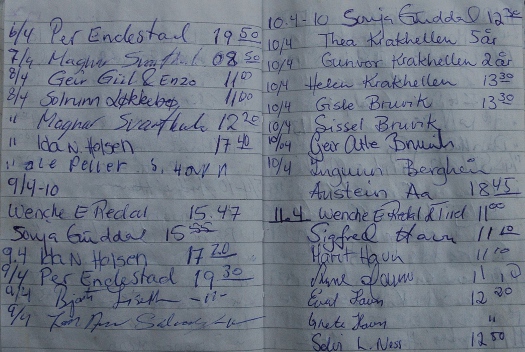 6/4 Per Endestad 19 50
7/4 Magnar Svarthul 08 50
8/4 Geir Gisl & Enzo 11 00
8/4 Solrunn Løkkebø, 11 00
" Magnar 12 20
" Ida N. Holsen 17 40
" Ole Petter S.
9/4-10
Wenche E Redal 15.47
Sonja Guddal 15 55
9.4 Ida N. Holsen 17 20
9/4 Per Endestad 19 30
9/4 Bjørn -"-
9/4
10.4-10 Sonja Guddal 12 30
10/4 Thea Krakhellen 5år
10/4 Gunvor Krakhellen 2år
10/4 Helen Krakhellen 13 30
10/4 Gisle Bruvik 13 30
10/4 Sissel Bruvik
10/04 Geir Atle Bruvik
10/4 Ingunn Berghein
Austein Aa 18 45
11.4 Wenche E Redal & Turid 11 00
Sigfred Havn 11 10
Marit Havn 11 10
Havn 11 10
Havn 12 20
Grete Havn "
Solv L. Ness 12 50